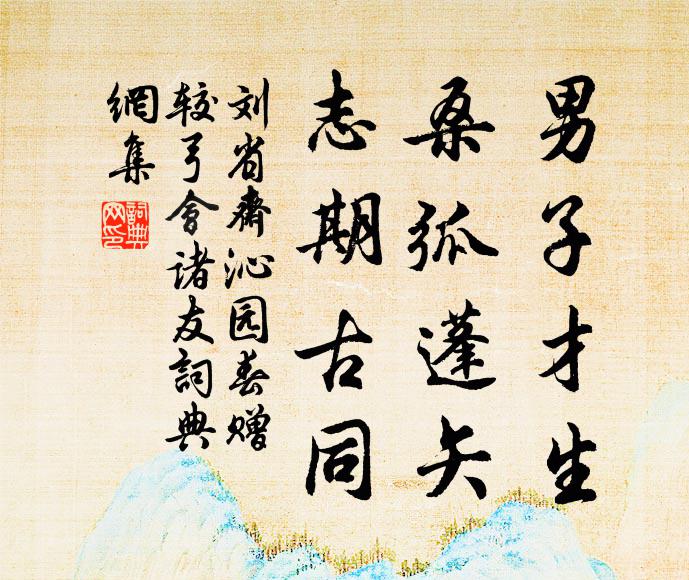 男子才生
桑弧蓬矢
志期古同
刘省斋沁园春赠
较弓会诸友詞典
網集
詞典
网印